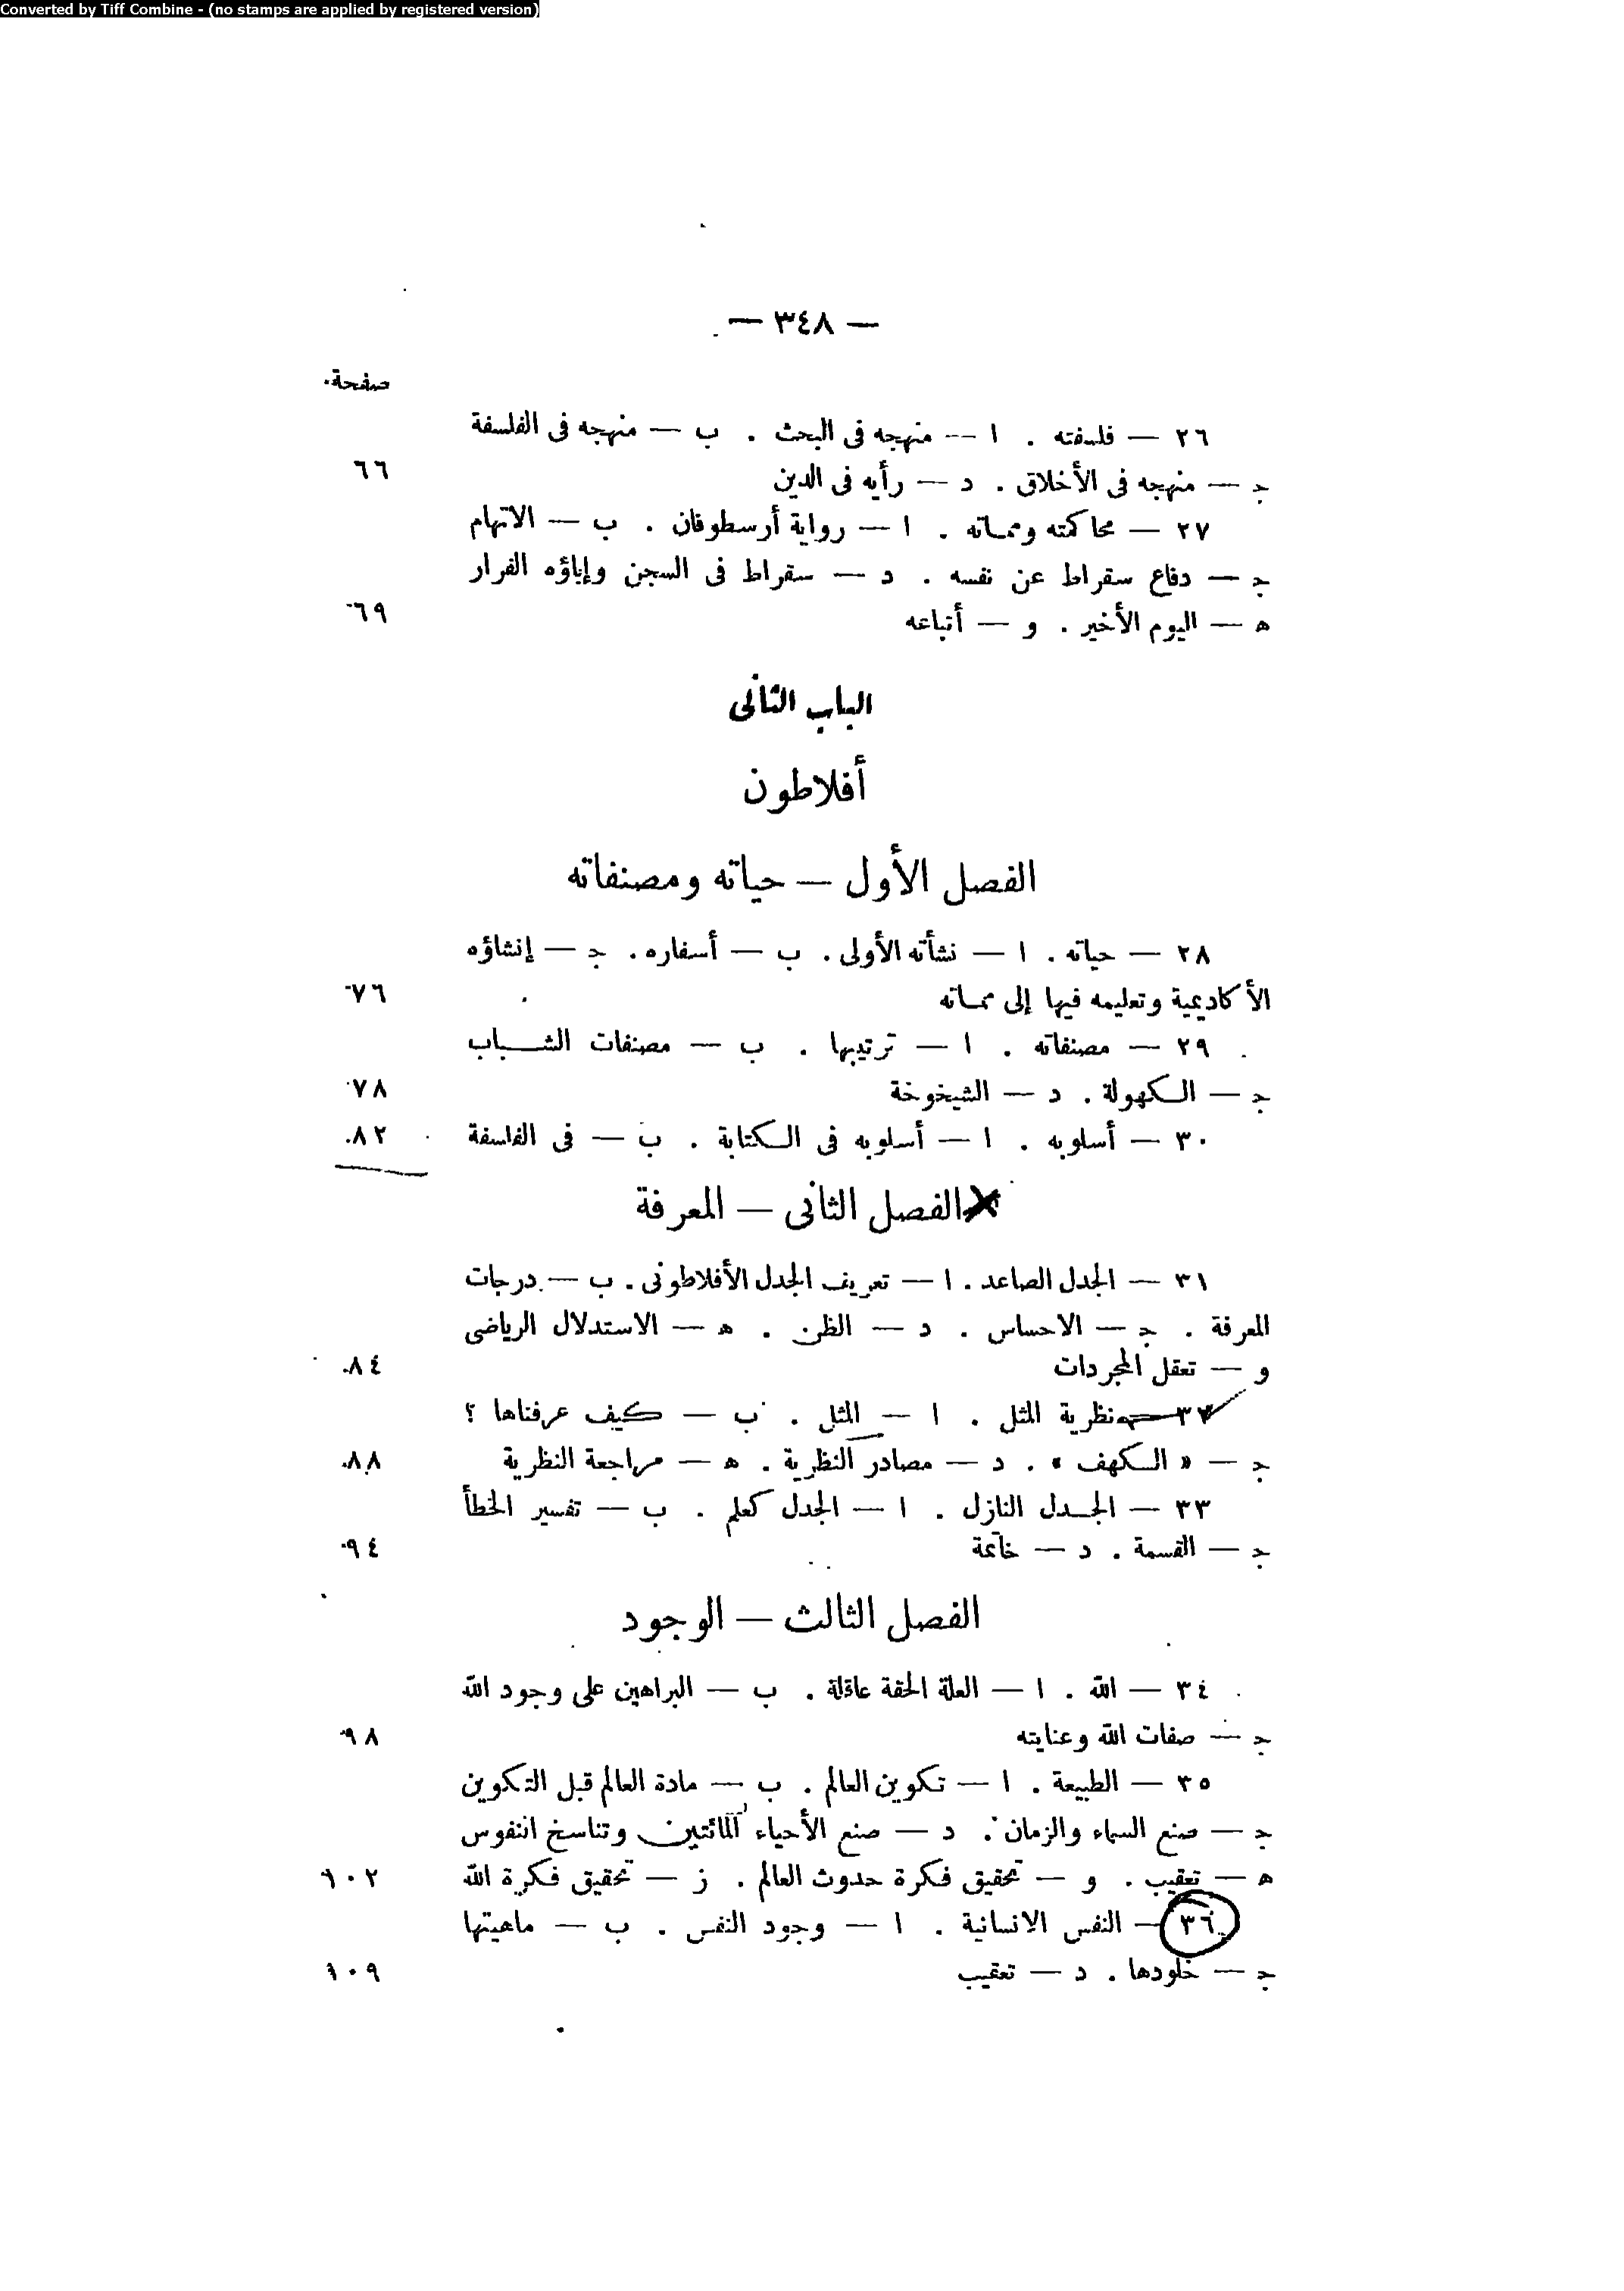 Converted by Tiff Combine - (no stamps are applied by registered version)
— ٣٤٨ —
صفحة
٢٦ — فلسفته . ا — منهجه فى البحث . ب — منهجه فى الفلسفة
ج — منهجه فى الأخلاق . د — رأيه فى الدين ٦٦
٢٧ — محاكمته ومماته . ا — رواية أرسطوفان . ب — الاتهام
ج — دفاع سقراط عن نفسه . د — سقراط فى السجن وإباؤه الفرار
ه — اليوم الأخير . و — أتباعه ٦٩
الباب الثانى
أفلاطون
الفصل الأول — حياته ومصنفاته
٢٨ — حياته . ا — نشأته الأولى . ب — أسفاره . ج — إنشاؤه
الأكاديمية وتعليمه فيها إلى مماته ٧٦
٢٩ — مصنفاته . ا — ترتيبها . ب — مصنفات الشباب
ج — الكهولة . د — الشيخوخة ٧٨
٣٠ — أسلوبه . ا — أسلوبه فى الكتابة . ب — فى الفلسفة ٨٢
الفصل الثانى — المعرفة
٣١ — الجدل الصاعد . ا — تعريف الجدل الأفلاطونى . ب — درجات
المعرفة . ج — الاحساس . د — الظن . ه — الاستدلال الرياضى
و — تعقل المجردات ٨٤
٣٢ — نظرية المثل . ا — المثل . ب — كيف عرفناها ؟
ج — « الكهف » . د — مصادر النظرية . ه — مراجعة النظرية ٨٨
٣٣ — الجدل النازل . ا — الجدل كعلم . ب — تفسير الخطأ
ج — القسمة . د — خاتمة ٩٤
الفصل الثالث — الوجود
٣٤ — الله . ا — العلة الحقة عاقلة . ب — البراهين على وجود الله
ج — صفات الله وعنايته ٩٨
٣٥ — الطبيعة . ا — تكوين العالم . ب — مادة العالم قبل التكوين
ج — صنع السماء والزمان . د — صنع الأحياء المائتين وتناسخ النفوس
ه — تعقيب . و — تحقيق فكرة حدوث العالم . ز — تحقيق فكرة الله ١٠٢
٣٦ — النفس الانسانية . ا — وجود النفس . ب — ماهيتها
ج — خلودها . د — تعقيب ١٠٩